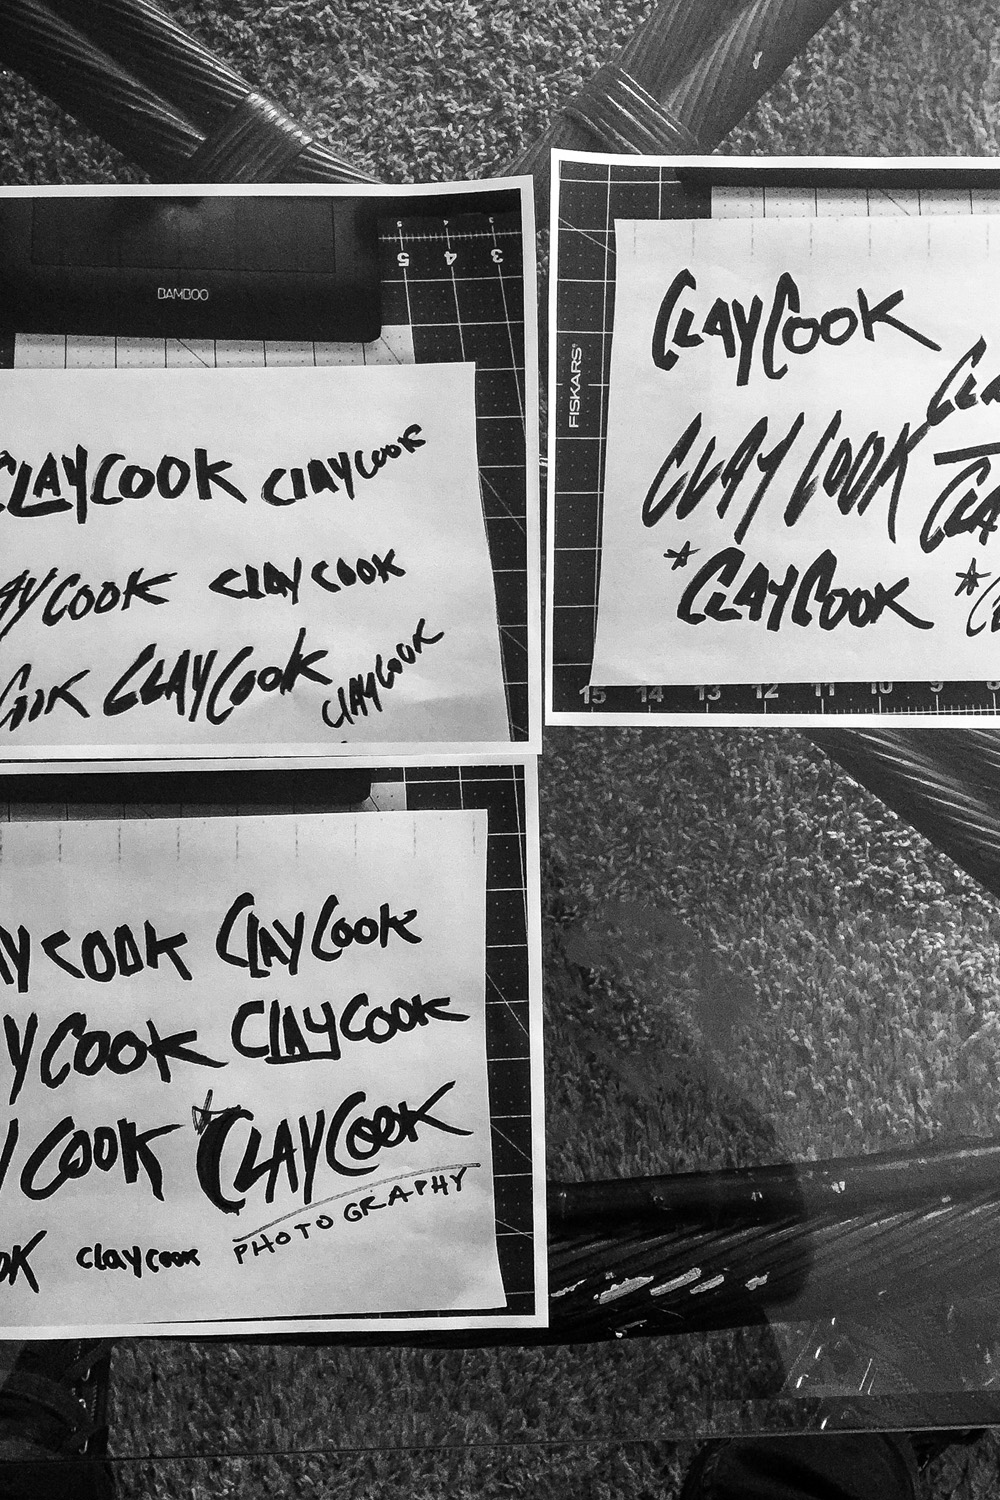 BAMBOO
5 4 3
5 4 3
CLAYCOOK CLAYCOOK
AYCOOK CLAY COOK
COOK CLAYCOOK CLAYCOOK
FISKARS
CLAYCOOK
CLA
CLAY COOK
CLA
*CLAYCOOK
15 14 13 12 11 10 9 8
AY COOK CLAYCOOK
YCOOK CLAYCOOK
Y COOK CLAYCOOK
PHOTOGRAPHY
OK CLAYCOOK